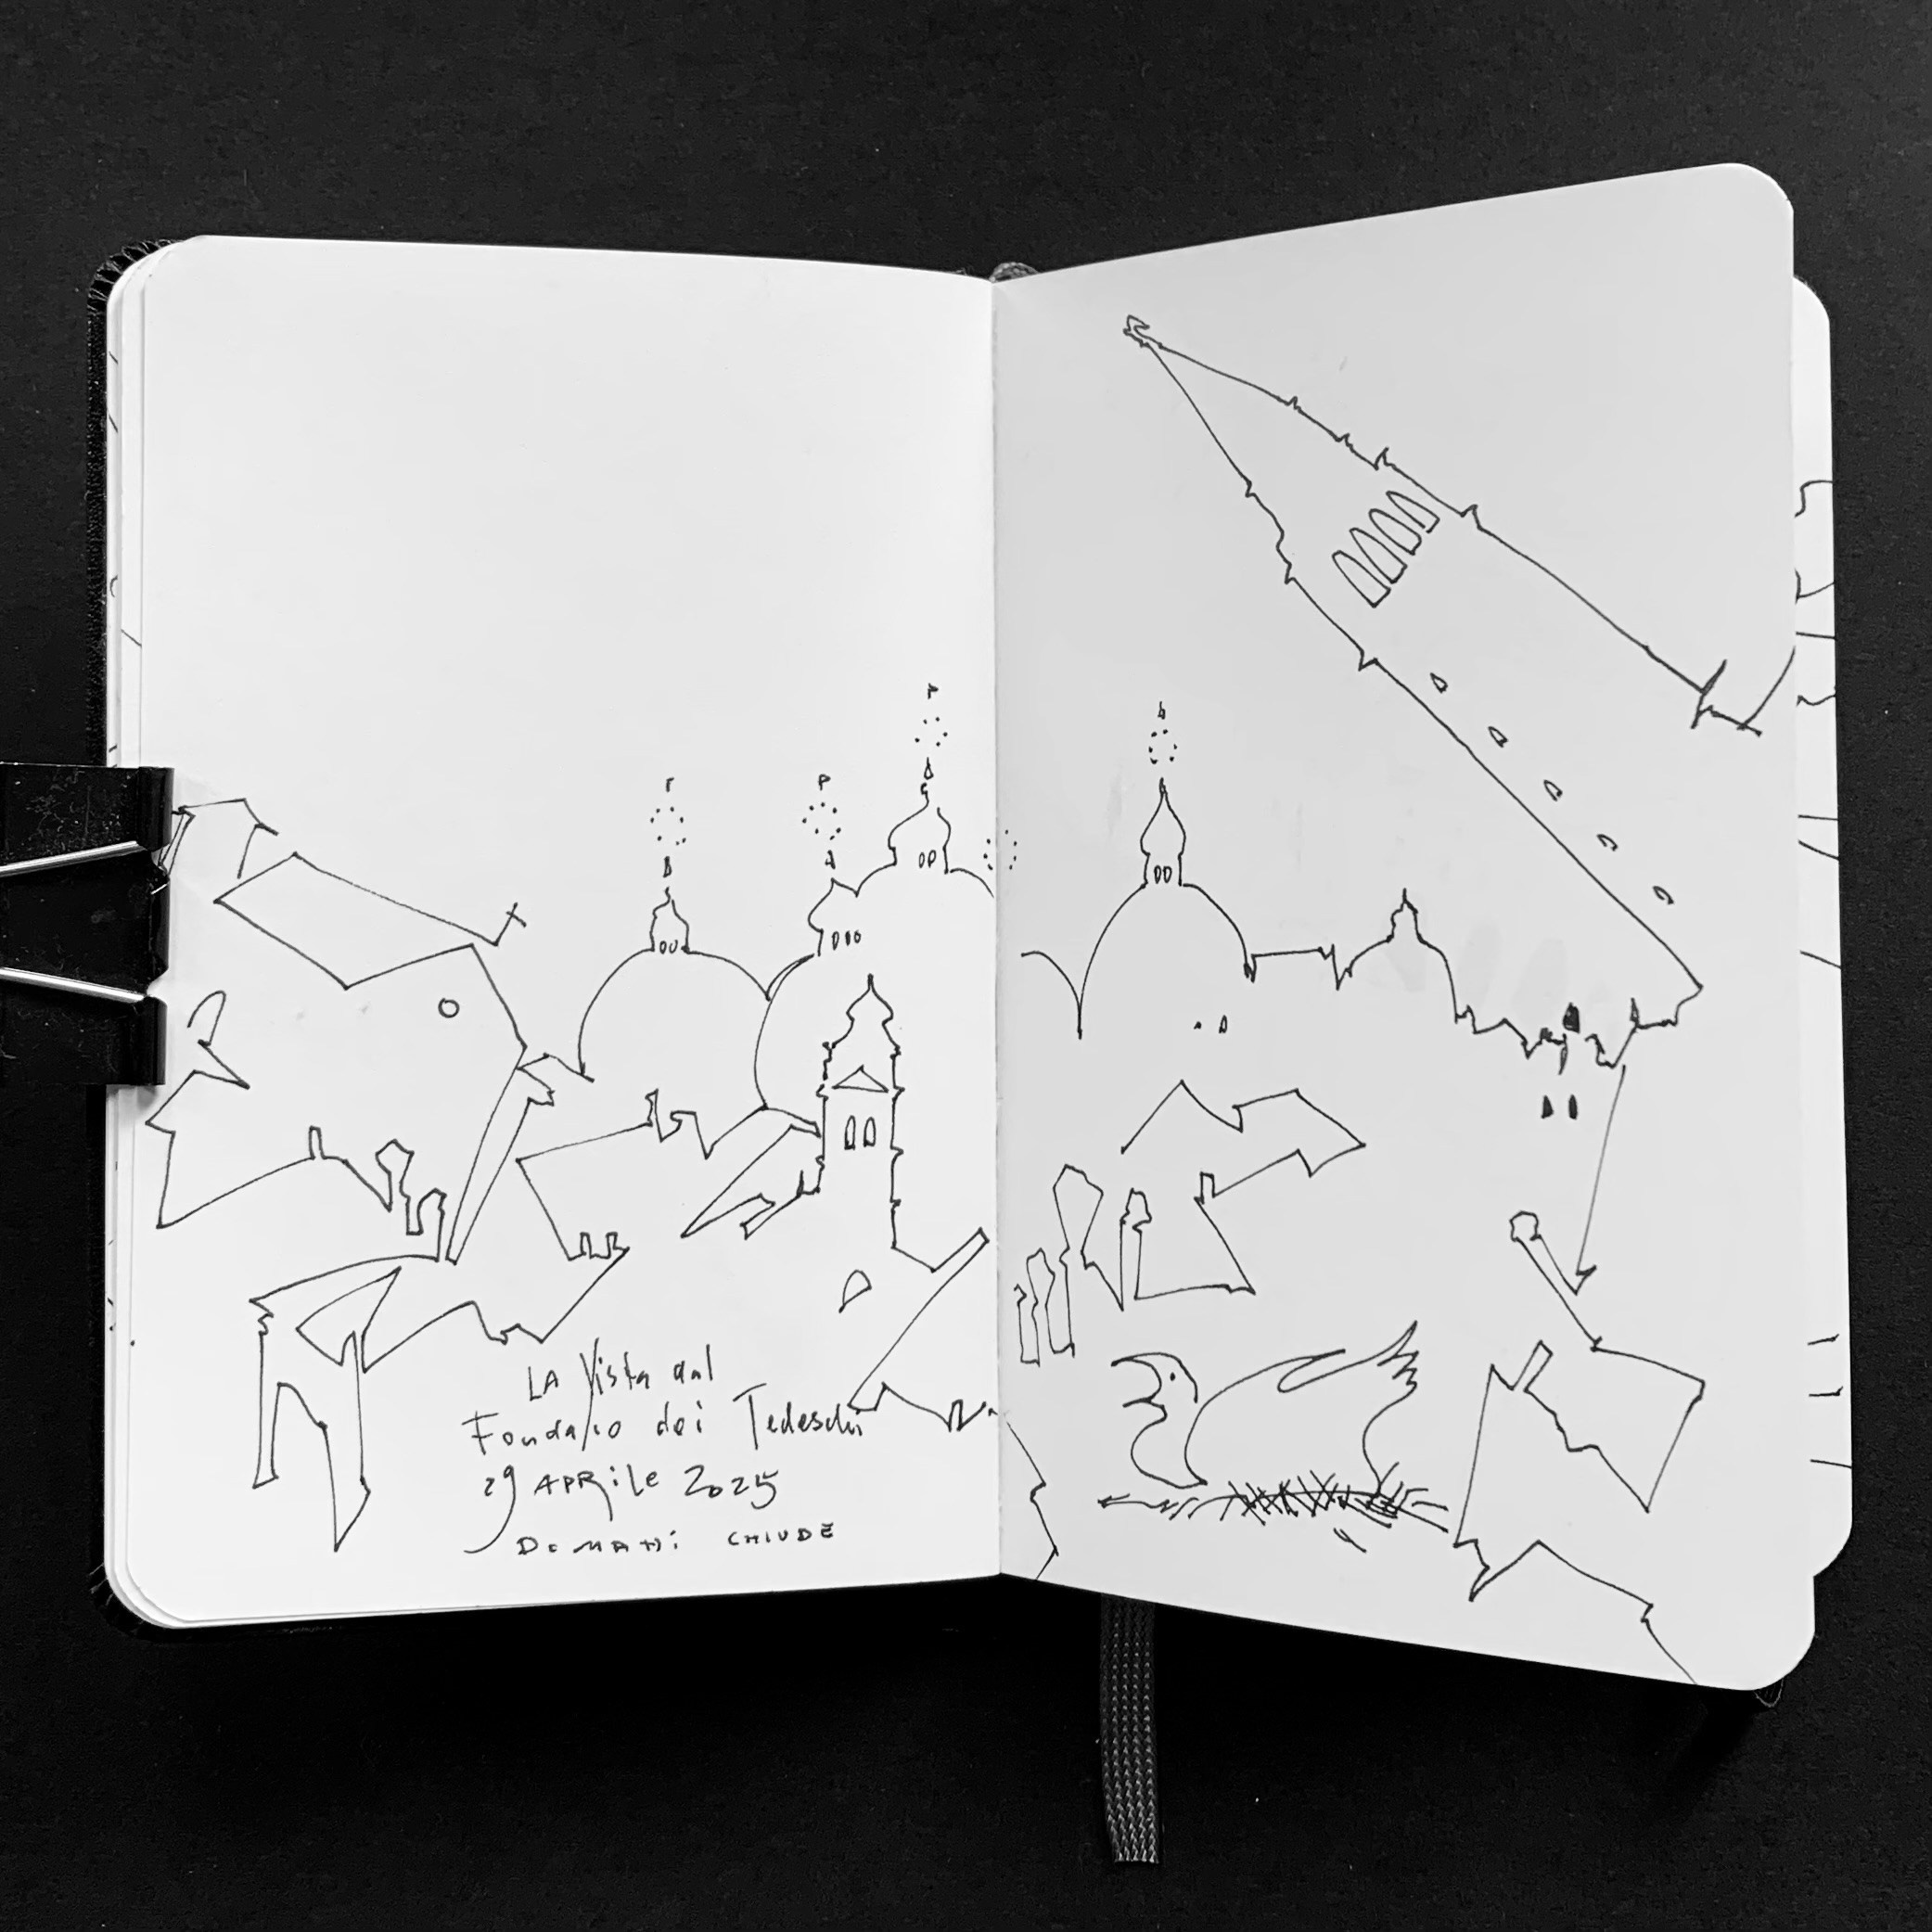 LA Vista dal
Fondaco dei Tedeschi
29 APRILE 2025
DOMANI CHIUDE